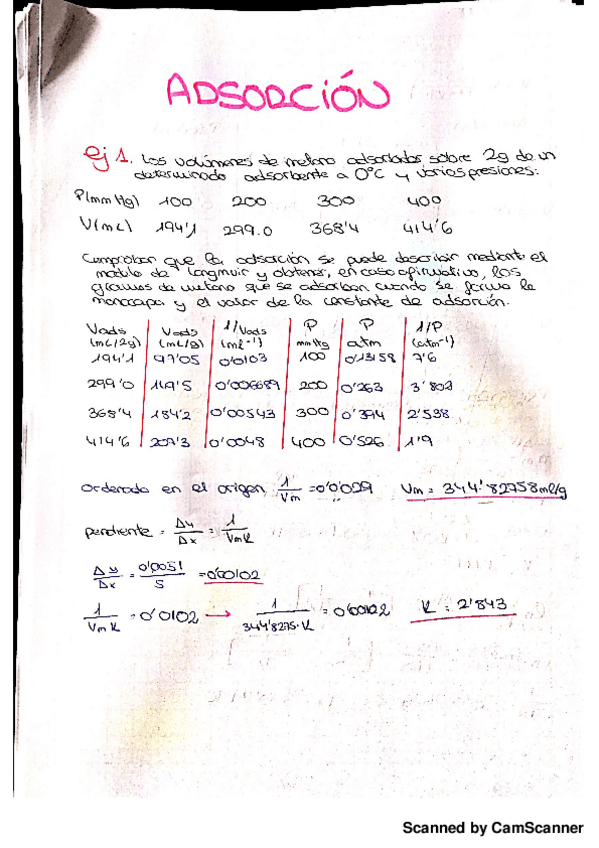 ADSORCIÓN
ej 1. Los volúmenes de metano adsorbidos sobre 2g de un
determinado adsorbente a 0°C y varias presiones:
P(mmHg) 100 200 300 400
V(mL) 194'1 299.0 368'4 414'6
Comprobar que la adsorción se puede describir mediante el
modelo de Langmuir y obtener, en caso afirmativo, los
gramos de metano que se adsorben cuando se forma la
monocapa y el valor de la constante de adsorción.
Vads Vads 1/Vads P P 1/P
(mL/2g) (mL/g) (mL⁻¹) mmHg atm (atm⁻¹)
194'1 97'05 0'0103 100 0'13158 7'6
299'0 149'5 0'006689 200 0'263 3'802
368'4 184'2 0'00543 300 0'394 2'538
414'6 207'3 0'0048 400 0'526 1'9
ordenada en el origen 1/Vm = 0'0029 Vm = 344'82758 ml/g
pendiente = Δy/Δx = 1/VmK
Δy/Δx = 0'0051/5 = 0'00102
1/VmK = 0'00102 → 1/344'8275·K = 0'00102 K = 2'843
Scanned by CamScanner